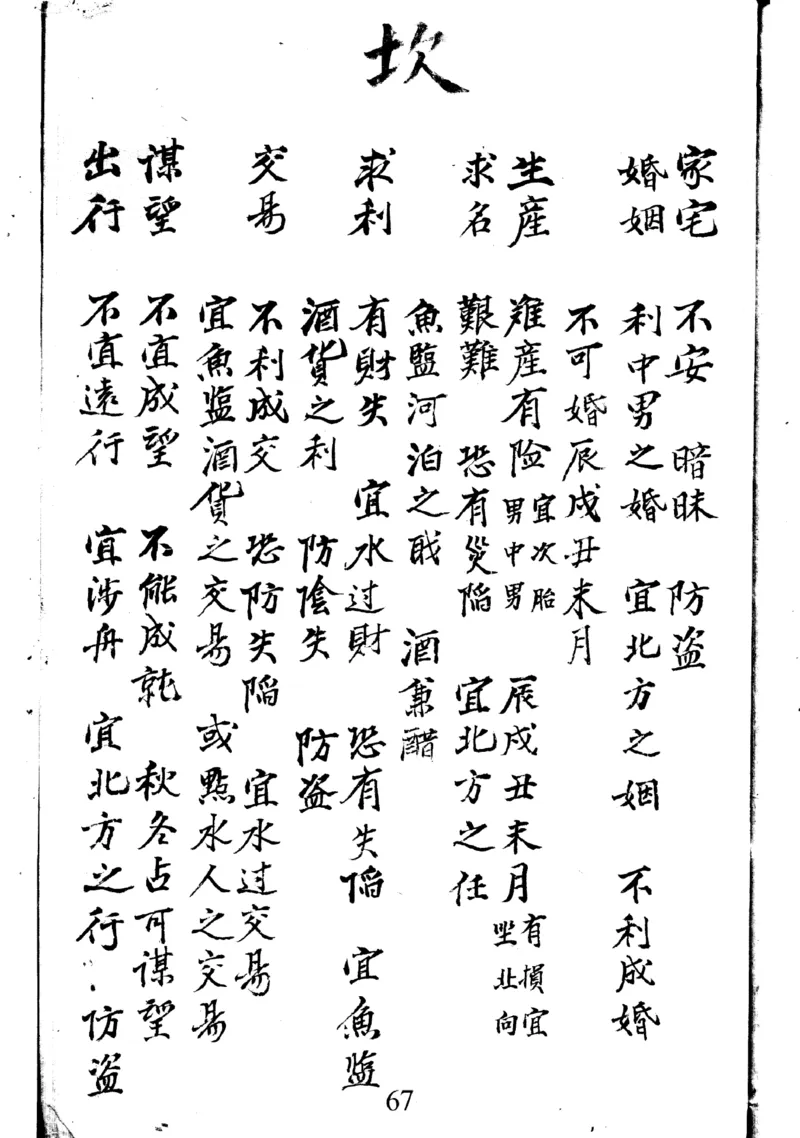 坎
家宅 不安 暗昧 防盗
婚姻 利中男之婚 宜北方之姻 不利成婚
不可婚辰戌丑未月
生產 难產有险 宜次胎男中男 辰戌丑未月 有損宜坐北向
求名 艱難 恐有災陷 宜北方之任
魚監河泊之戝 酒兼醋
求利 有財失 宜水过財 恐有失陷 宜魚监
酒貨之利 防陰失 防盗
交易 不利成交 恐防失陷 宜水过交易
宜魚监酒貨之交易 或點水人之交易
谋望 不宜成望 不能成就 秋冬占可谋望
出行 不宜遠行 宜涉舟 宜北方之行 防盗
67